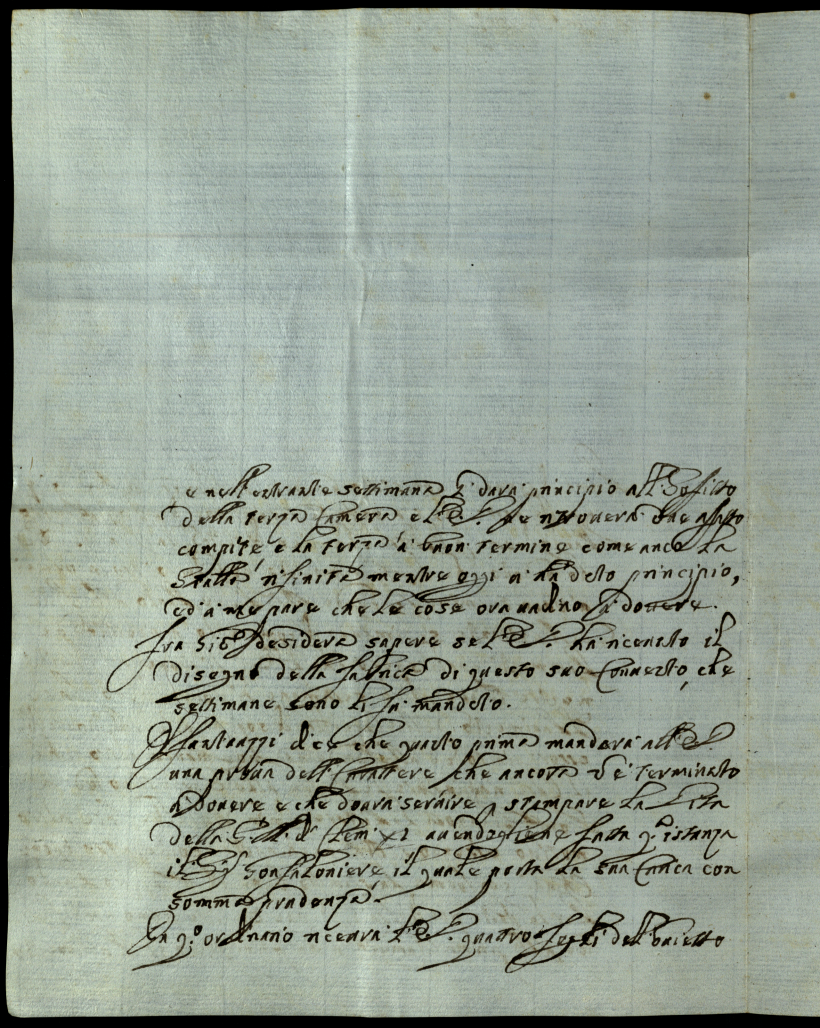 e nell'entrante settimana si darà principio all Soffitto
della terza Camera e l'E. V. ne ritrouerà due affatto
compite e la terza à buon termine come anco la
Stalla rifinita mentre oggi ui hà dato principio,
ed à me pare che le cose ora uadino à douere.
Fra Gio desidera sapere se l'E. V. hà riceuuto il
disegno della fabrica di questo suo Conuento, che
settimane sono li fù mandato.
Il fantauzzi dice che quanto prima mandarà all'E. V.
una proua dell Carattere che ancora è terminato
a douere e che dourà seruire stampare la Vita
della di Clem: XI auendogliene fatta istanza
il Sig Gonfaloniere il quale porta la sua Carica con
somma prudenza.
In q.o ordinario riceurà l'E. V. quattro fogli dell